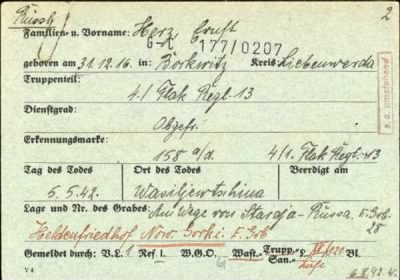 Russl. 2
Familien- u. Vorname: Herz, Ernst
G-A 177/0207
geboren am 31.12.16. in: Borkwitz Kreis: Liebenwerda
Truppenteil: 4./ Flak Regt. 13
Dienstgrad: Obgefr.
s. a. umstehend
Erkennungsmarke: 158 a/d. 4/1. Flak Regt. 13
Tag des Todes Ort des Todes Beerdigt am
5.5.42. Wasiljewtschina
Lage und Nr. des Grabes: Am Wege von Staraja-Russa, E. Grb
28
Heldenfriedhof Now. Gorki. E. Grb
Gemeldet durch: V.L. 1 Ref I. W.G.O. Wast.- Trupp.- San.- Bl.
V 4 6.8.42.